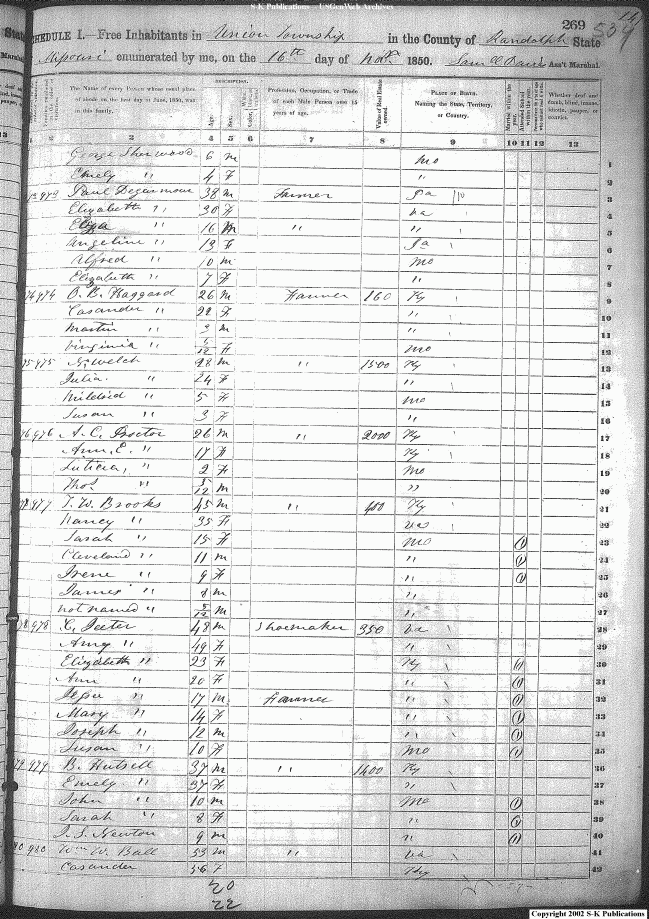 S-K Publications - USGenWeb Archives
269
SCHEDULE I.—Free Inhabitants in Union Township in the County of Randolph State
Missouri enumerated by me, on the 16th day of 1850. Ass't Marshal.
DESCRIPTION.
The Name of every Person whose usual place of abode on the first day of June, 1850, was in this family.
Age.
Sex.
Profession, Occupation, or Trade of each Male Person over 15 years of age.
Value of Real Estate owned.
PLACE OF BIRTH. Naming the State, Territory, or Country.
Married within the year.
Attended School within the year.
Whether deaf and dumb, blind, insane, idiotic, pauper, or convict.
1 2 3 4 5 6 7 8 9 10 11 12 13
George Sherwood 6 m Mo 1
Emely " 4 F " 2
973 Paul 38 m Farmer 3
Elizabeth " 30 F Va 4
" 16 m " " 5
Angeline " 13 F 6
Alfred " 10 m Mo 7
Elizabeth " 7 F " 8
974 O. B. Haggard 26 m Farmer 160 Ky 9
Casander " 22 F " 10
Martin " 3 m " 11
Virginia " 5/12 F Mo 12
975 Welch 28 m " 1500 Ky 13
Julia " 24 F " 14
Mildred " 5 F Mo 15
Susan " 3 F " 16
976 A. C. Proctor 26 m " 2000 Ky 17
Ann E. " 17 F Ky 18
Luticia, " 2 F Mo 19
Thos " 5/12 m " 20
977 T. W. Brooks 45 m " 400 Ky 21
Nancy " 35 F Va 22
Sarah " 15 F Mo 1 23
Cleveland " 11 m " 1 24
Irene " 9 F " 1 25
James " 8 m " 26
not named " 5/12 m " 27
978 C. Jeter 48 m Shoemaker 350 Va 28
Amy " 49 F " 29
Elizabeth " 23 F Ky 1 30
Ann " 20 F " 1 31
" 17 m Farmer " 1 32
Mary " 14 F " 1 33
Joseph " 12 m " 1 34
Susan " 10 F Mo 1 35
979 B. Hutsell 37 m " 1400 Ky 36
Emely " 37 F " 37
John " 10 m Mo 1 38
Sarah " 8 F " 1 39
J. S. Newton 9 m " 1 40
980 Wm W. Ball 53 m " Va 41
Casander 56 F Ky 42
20
22
Copyright 2002 S-K Publications